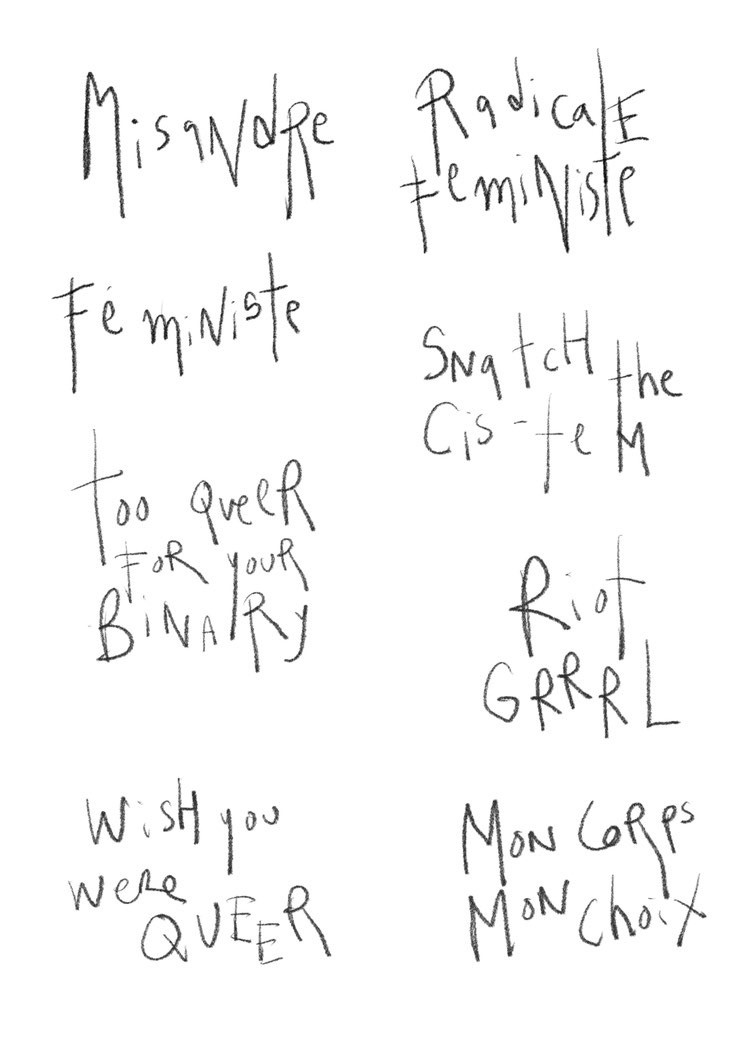 MisaNdRe
RadicalE
FeMiNiste
FéMiNiste
SNatcH the
Cis-teM
Too QueeR
FoR youR
BiNARy
Riot
GRRRL
WisH you
weRe
QUEER
MoN CoRps
MoN choix